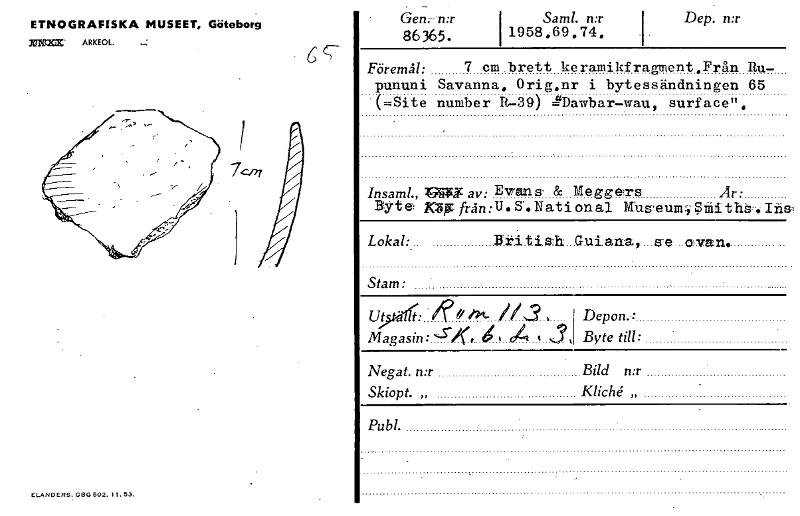 ETNOGRAFISKA MUSEET, Göteborg
ARKEOL.
65
7 cm
ELANDERS. GBG 502. 11. 53.
Gen. n:r Saml. n:r Dep. n:r
86365. 1958.69.74.
Föremål: 7 cm brett keramikfragment.Från Ru-
pununi Savanna. Orig.nr i bytessändningen 65
(=Site number R-39) ="Dawbar-wau, surface".
Insaml., av: Evans & Meggers År:
Byte Köp från: U.S.National Museum,Smiths.Ins
Lokal: British Guiana, se ovan.
Stam:
Utställt: Rum 113. Depon.:
Magasin: SK. 6. L. 3. Byte till:
Negat. n:r Bild n:r
Skiopt. „ Kliché „
Publ.